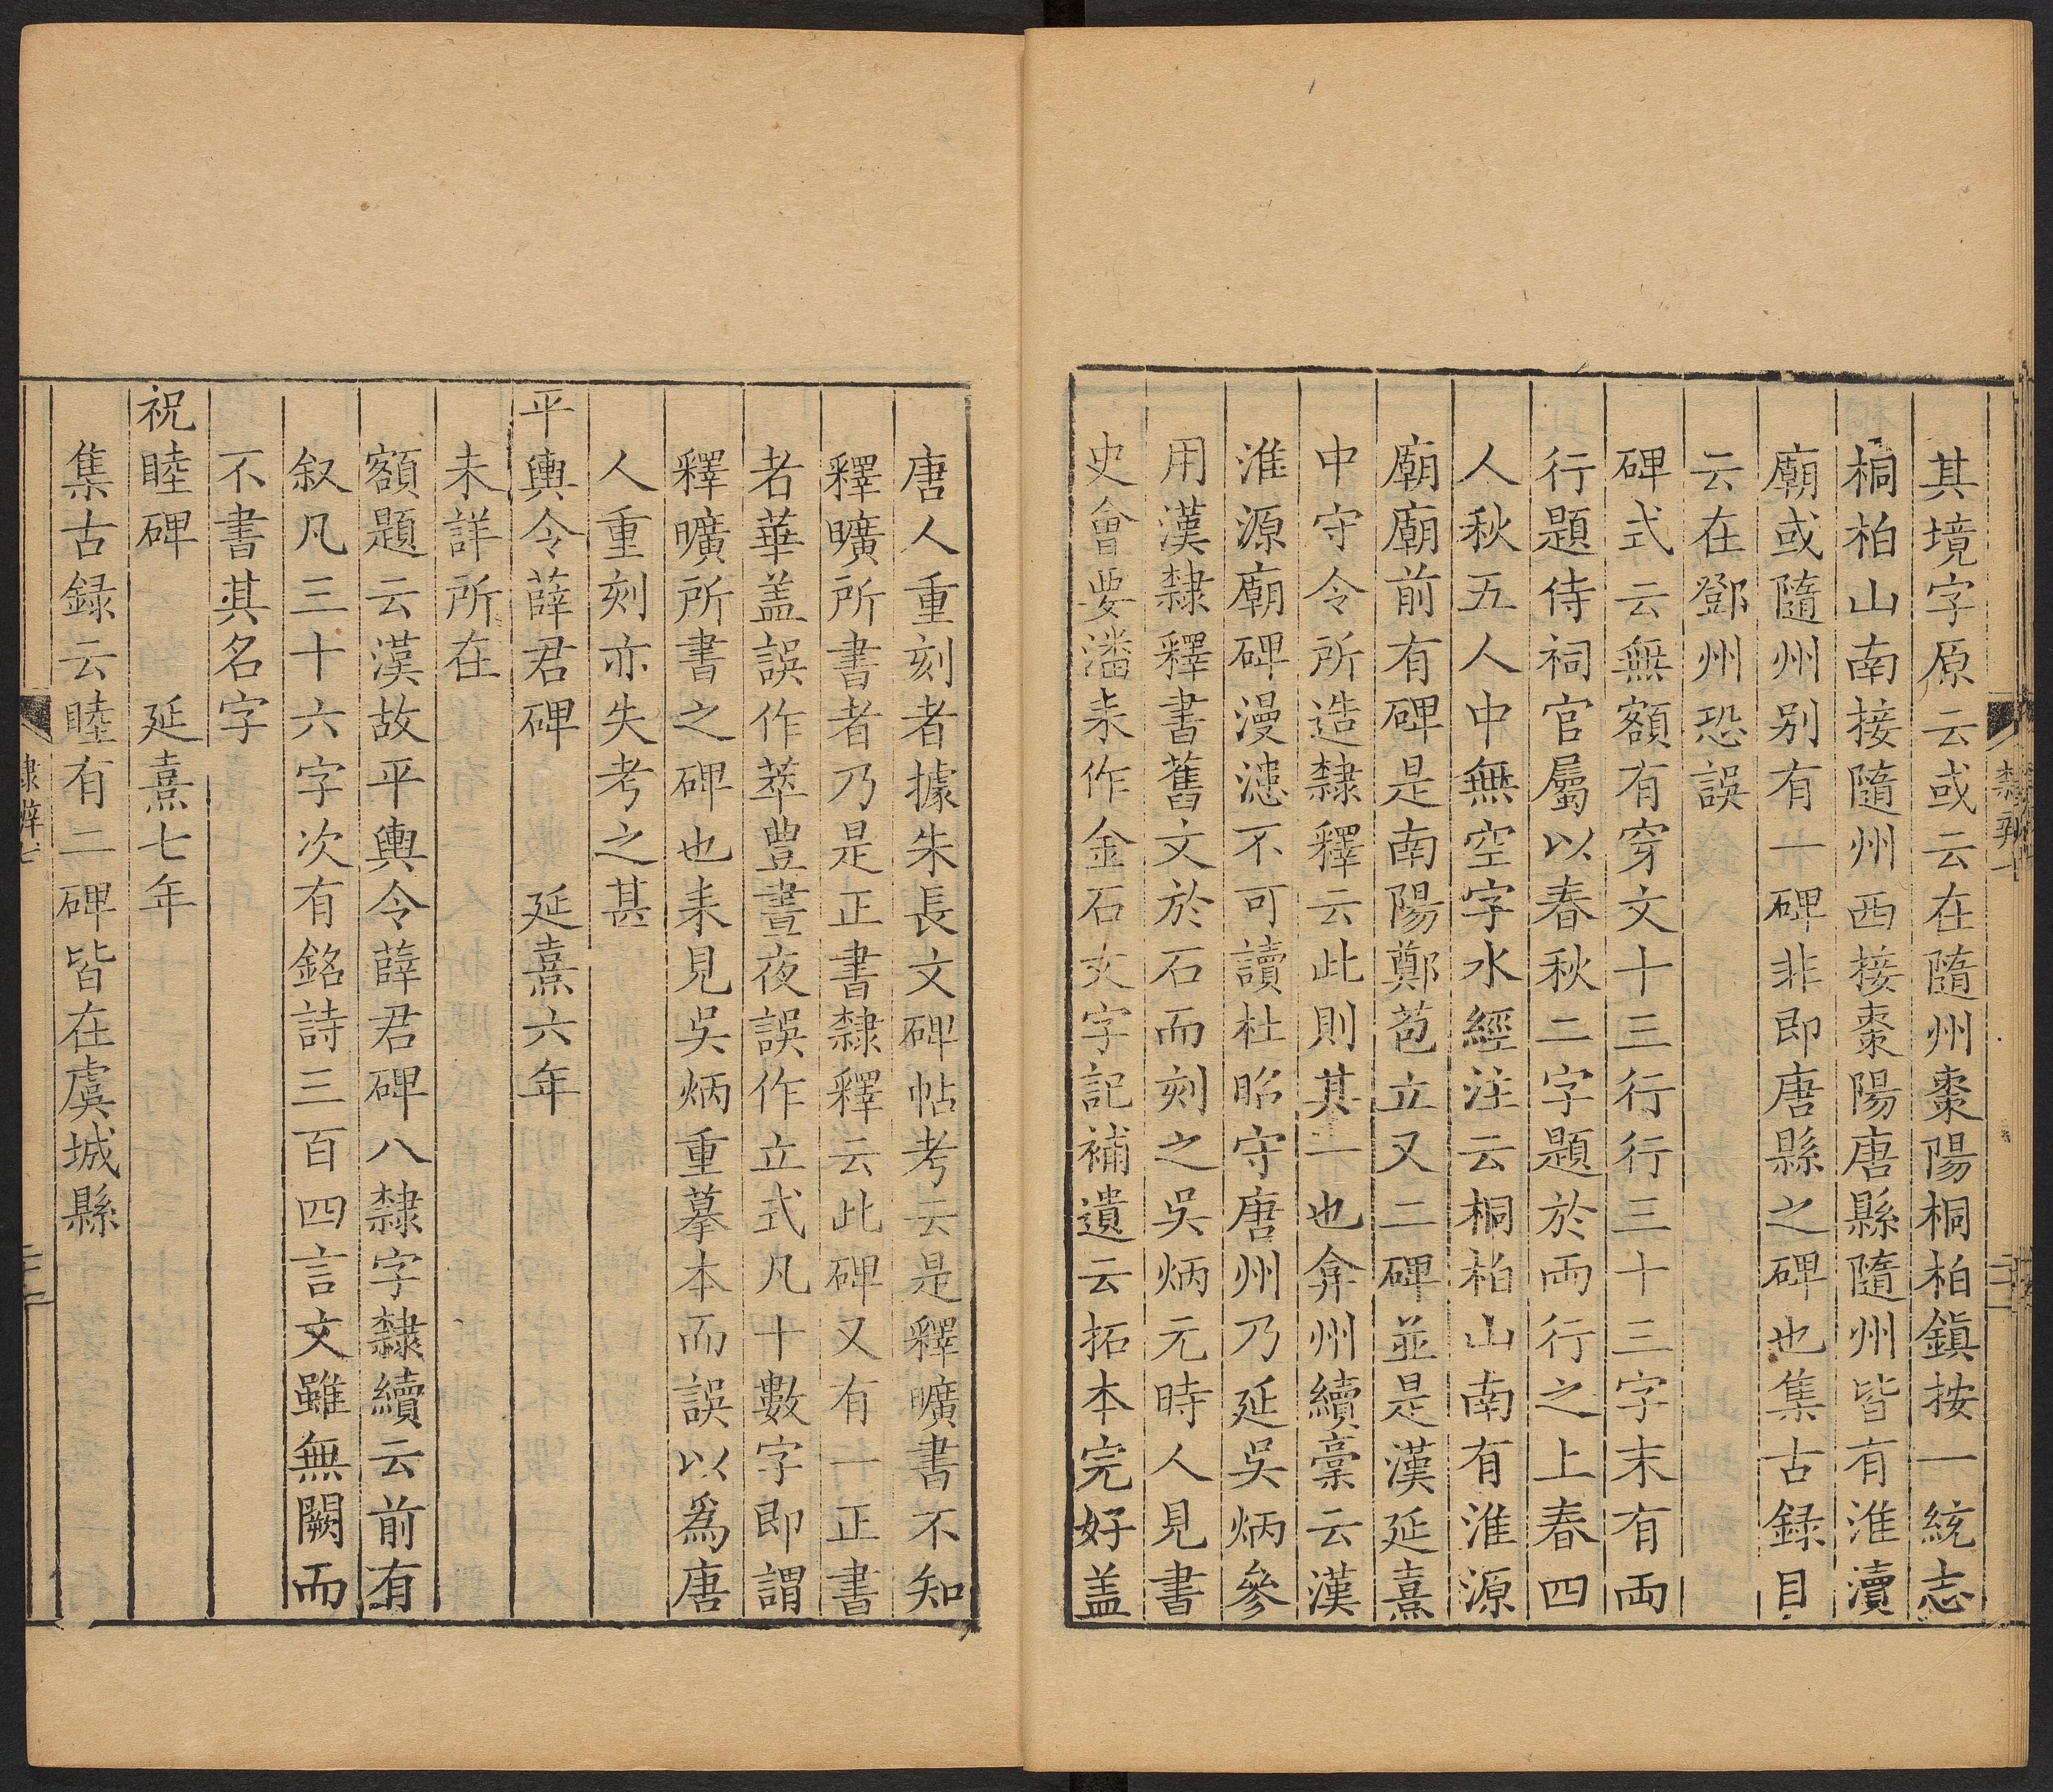 其境字原云或云在隨州棗陽桐柏鎮按一統志
桐柏山南接隨州西接棗陽唐縣隨州皆有淮瀆
廟或隨州别有一碑非即唐縣之碑也集古録目
云在鄧州恐誤
碑式云無額有穿文十三行行三十三字末有兩
行題侍祠官屬以春秋二字題於兩行之上春四
人秋五人中無空字水經注云桐柏山南有淮源
廟廟前有碑是南陽鄭苞立又二碑並是漢延熹
中守令所造隸釋云此則其一也弇州續藁云漢
淮源廟碑漫漶不可讀杜昭守唐州乃延吳炳參
用漢隸釋書舊文於石而刻之吳炳元時人見書
史會要潘耒作金石文字記補遺云拓本完好盖
唐人重刻者據朱長文碑帖考云是釋曠書不知
釋曠所書者乃是正書隸釋云此碑又有一正書
者華盖誤作萃豊晝夜誤作立式凡十數字即謂
釋曠所書之碑也耒見吳炳重摹本而誤以爲唐
人重刻亦失考之甚
平輿令薛君碑 延熹六年
未詳所在
額題云漢故平輿令薛君碑八隸字隸續云前有
叙凡三十六字次有銘詩三百四言文雖無闕而
不書其名字
祝睦碑 延熹七年
集古録云睦有二碑皆在虞城縣
隸辨七